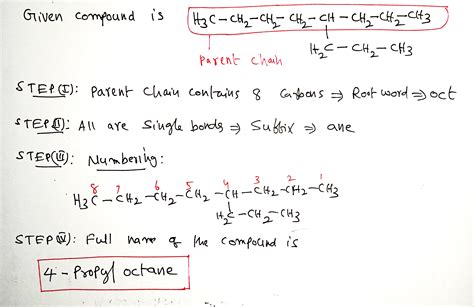 Given compound is H3C-CH2-CH2-CH2-CH-CH2-CH2-CH3
H2C-CH2-CH3
Parent chain
STEP(I): Parent chain contains 8 Carbons ⇒ Root word ⇒ oct
STEP(II): All are single bonds ⇒ Suffix ⇒ ane
STEP(III): Numbering:
8 7 6 5 4 3 2 1
H3C-CH2-CH2-CH2-CH-CH2-CH2-CH3
H2C-CH2-CH3
STEP(IV): Full name of the compound is
4-Propyl octane